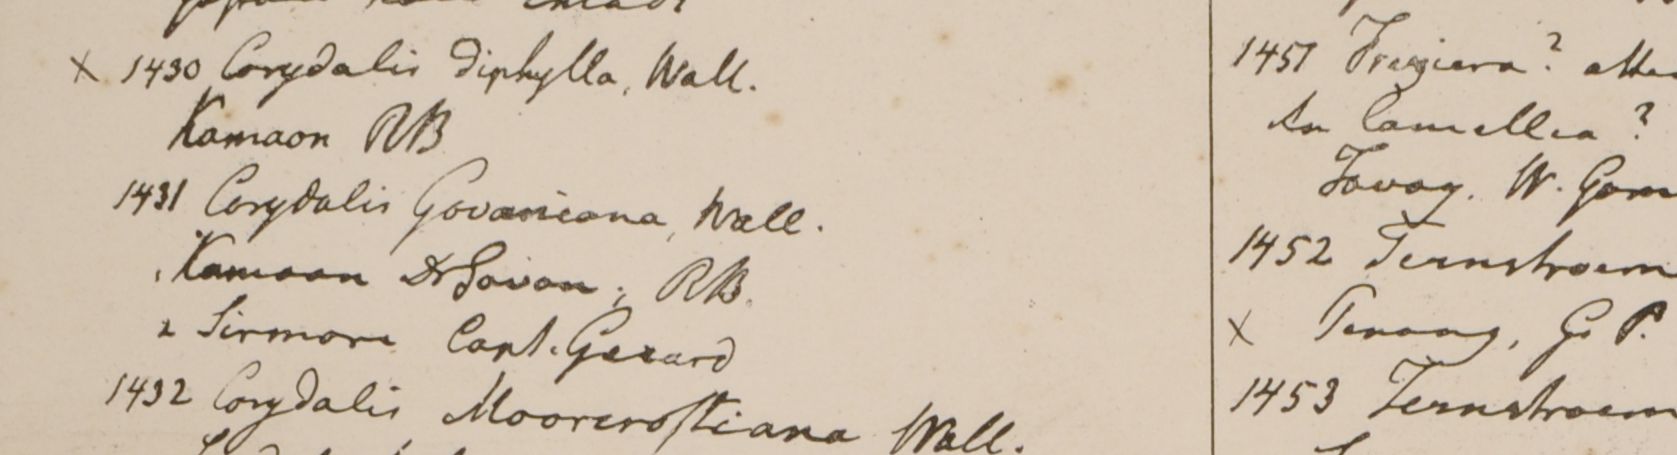 × 1430 Corydalis diphylla, Wall.
Kamaon RB
1431 Corydalis Govaniana, Wall.
Kamaon Dr Govan; RB.
2 Sirmore Capt. Gerard
1432 Corydalis Moorcroftiana Wall.
1451 Freziera?
An Camellia?
Tavoy. W. Gom
1452 Ternstroem
× Penang, G. P.
1453 Ternstroem